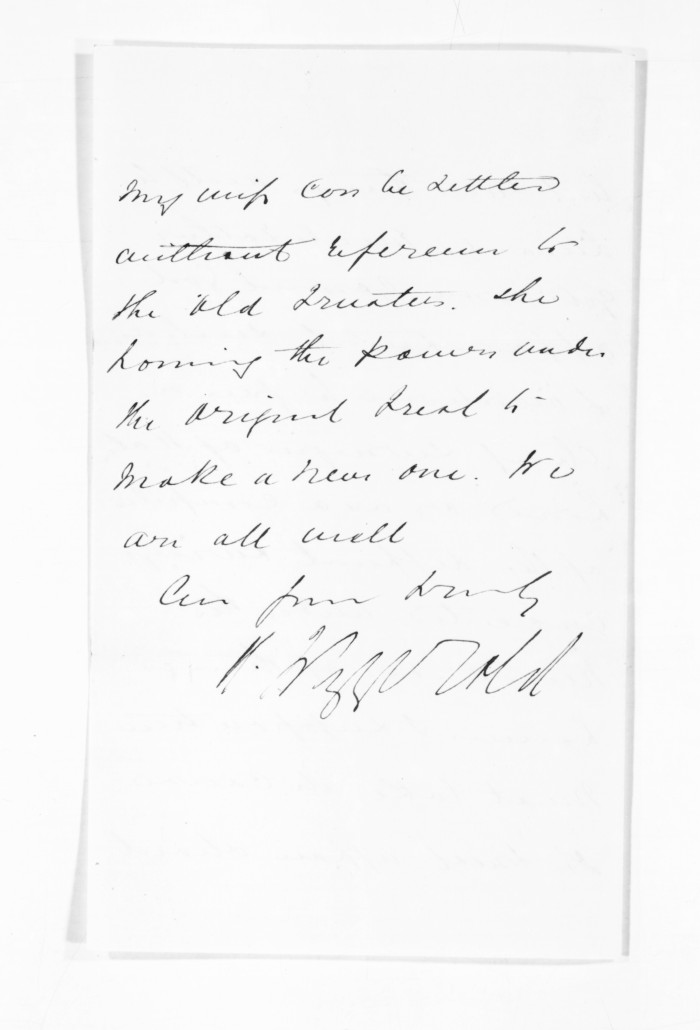 My wife can be settled
without reference to
the old Trustees. She
having the powers under
the original Trust to
make a new one. We
are all well
Ever yours truly